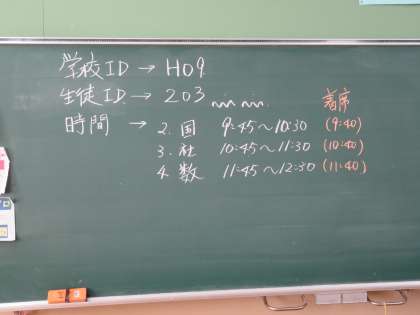 学校ID → H09
生徒ID → 203
着席
時間 → 2. 国 9:45～10:30 (9:40)
3. 社 10:45～11:30 (10:40)
4. 数 11:45～12:30 (11:40)